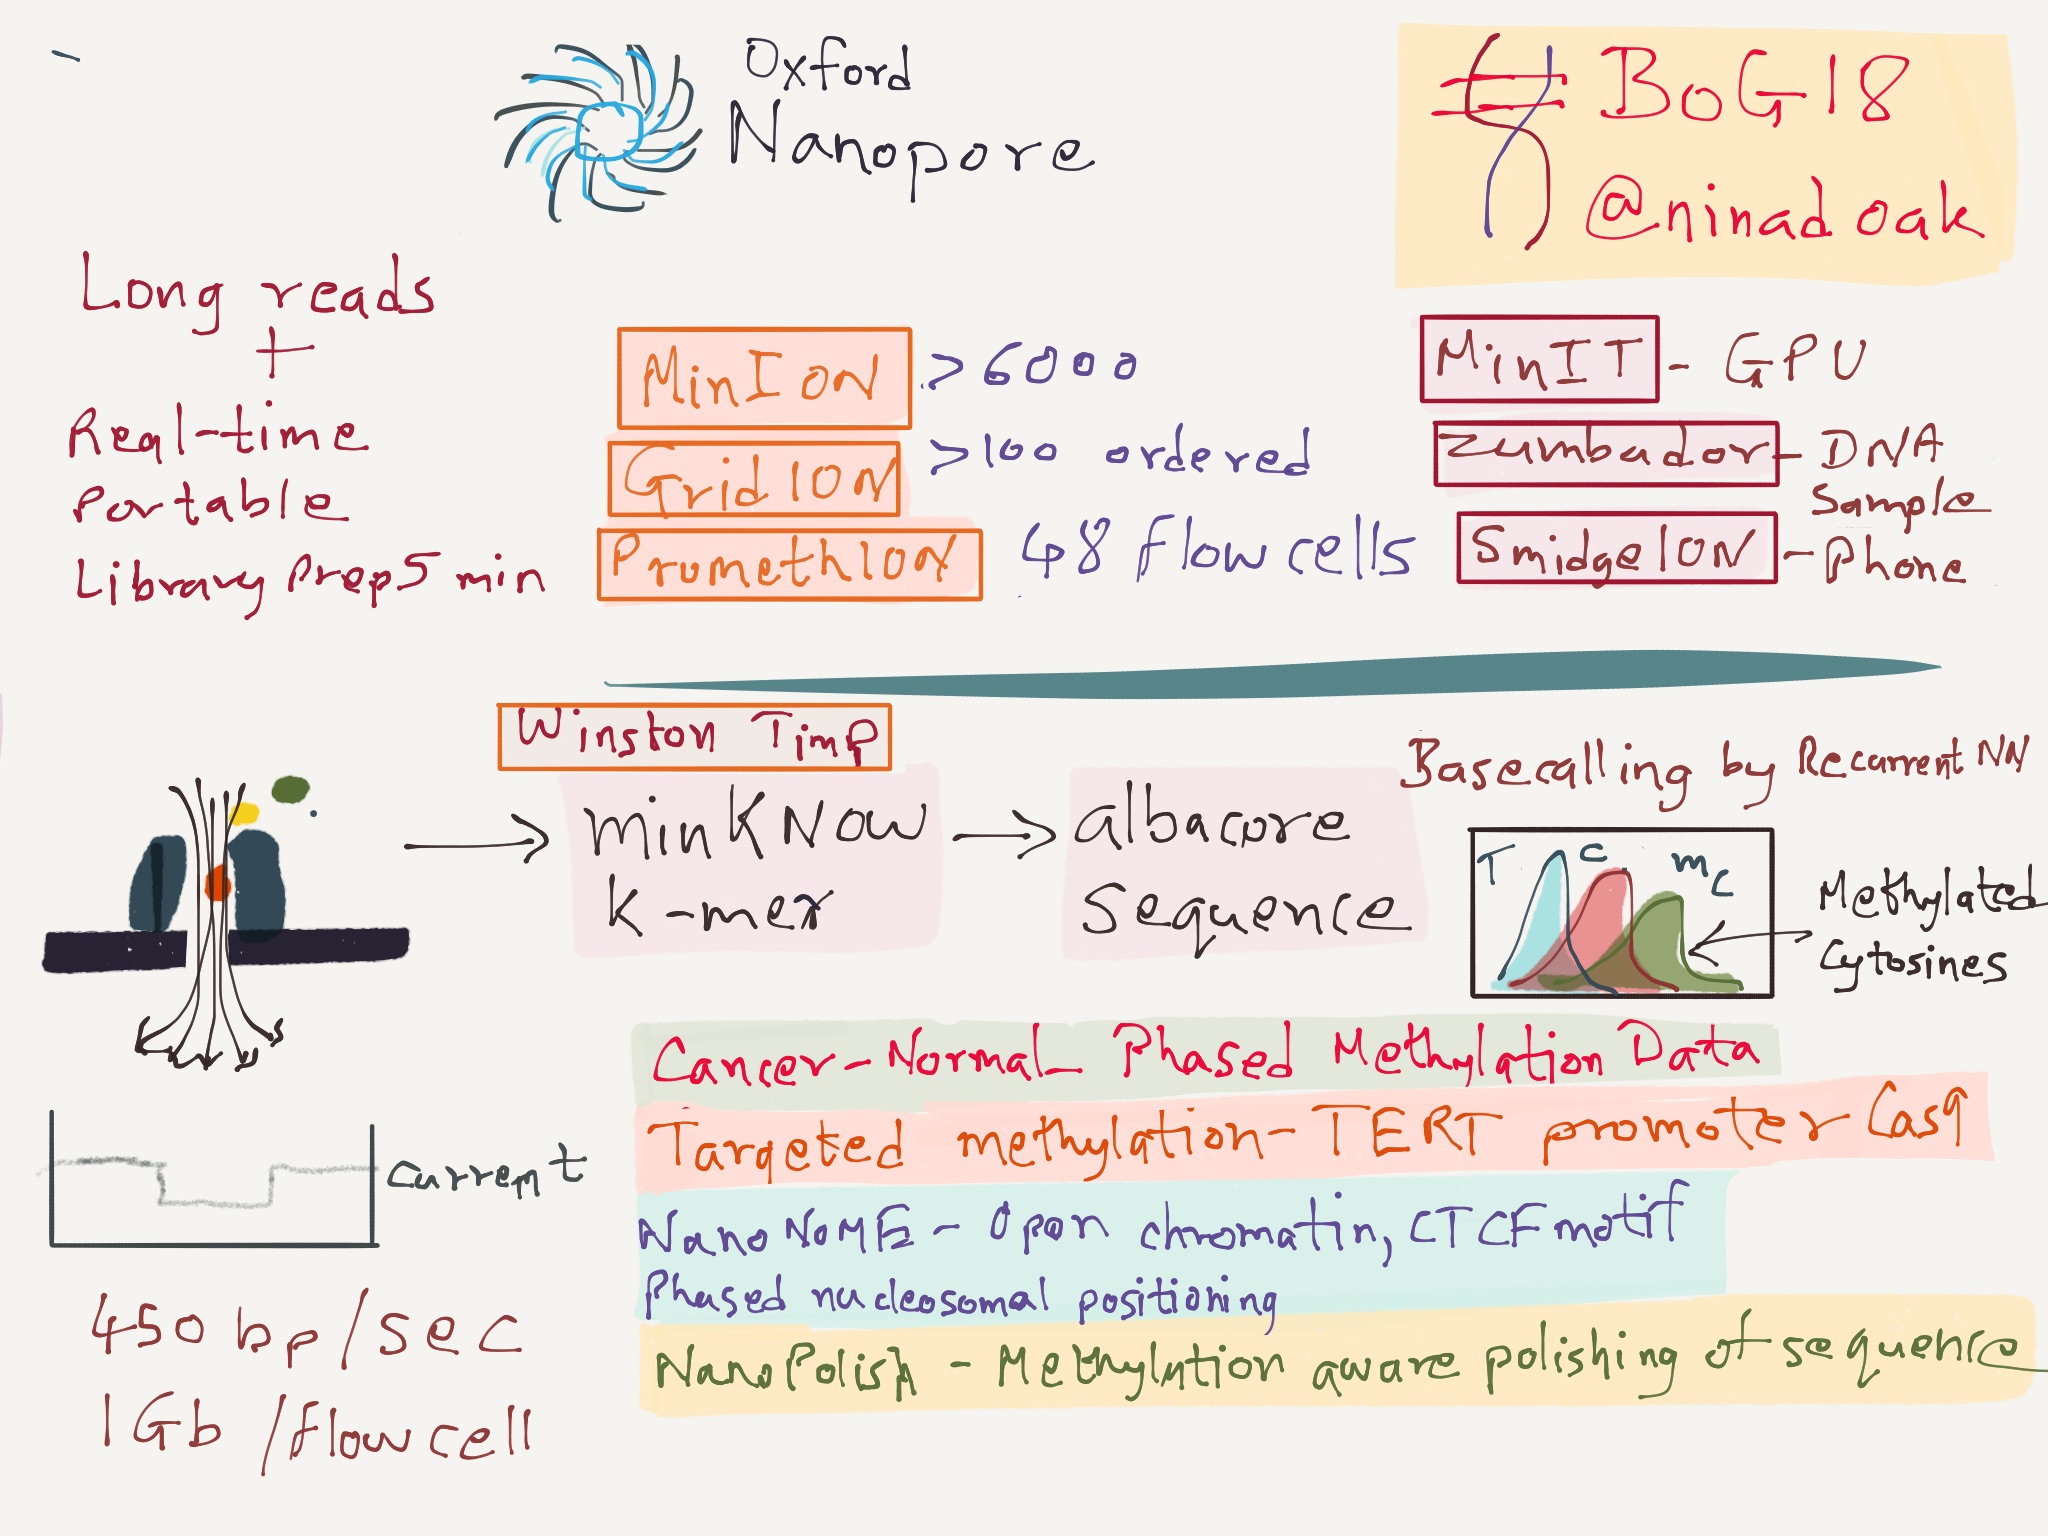 Oxford
Nanopore
# BoG18
@ninadoak
Long reads
+
Real-time
Portable
Library Prep 5 min
MinION > 6000
GridION >100 ordered
PromethION 48 flow cells
MinIT - GPU
Zumbador - DNA
Sample
SmidgeION - Phone
Winston Timp
minKNOW → albacore
K-mer
Sequence
Basecalling by Recurrent NN
T C mC
Methylated
Cytosines
Current
450 bp/sec
1Gb /flow cell
Cancer-Normal_ Phased Methylation Data
Targeted methylation- TERT promoter Cas9
NanoNOME - Open chromatin, CTCF motif
Phased nucleosomal positioning
NanoPolish - Methylation aware polishing of sequence